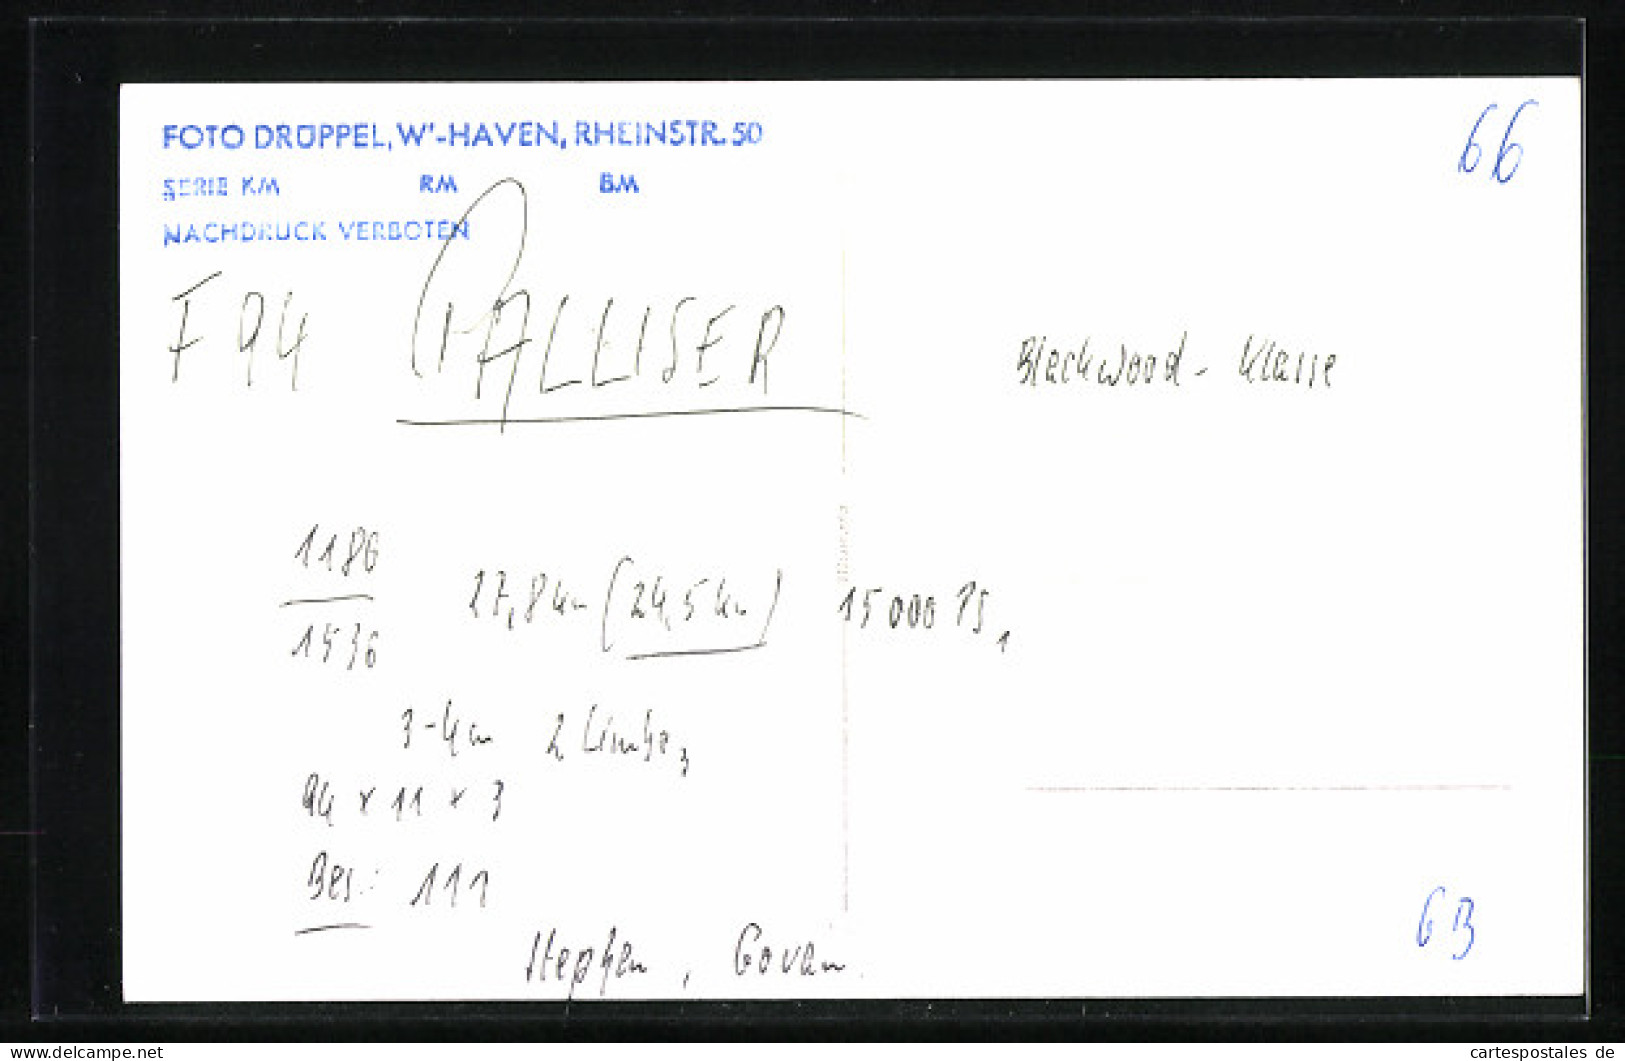 66
FOTO DRÜPPEL, W'-HAVEN, RHEINSTR. 50
SERIE KM RM BM
NACHDRUCK VERBOTEN
F 94 PALLISER
Blackwood - Klasse
1180
1536
27,8 kn (24,5 kn) 15000 PS, 1
3-4 cm 2 Limbo 3
94 x 11 x 3
Bes.: 111
Stephen, Govan.
GB
www.cartespostales.de
cartespostales de